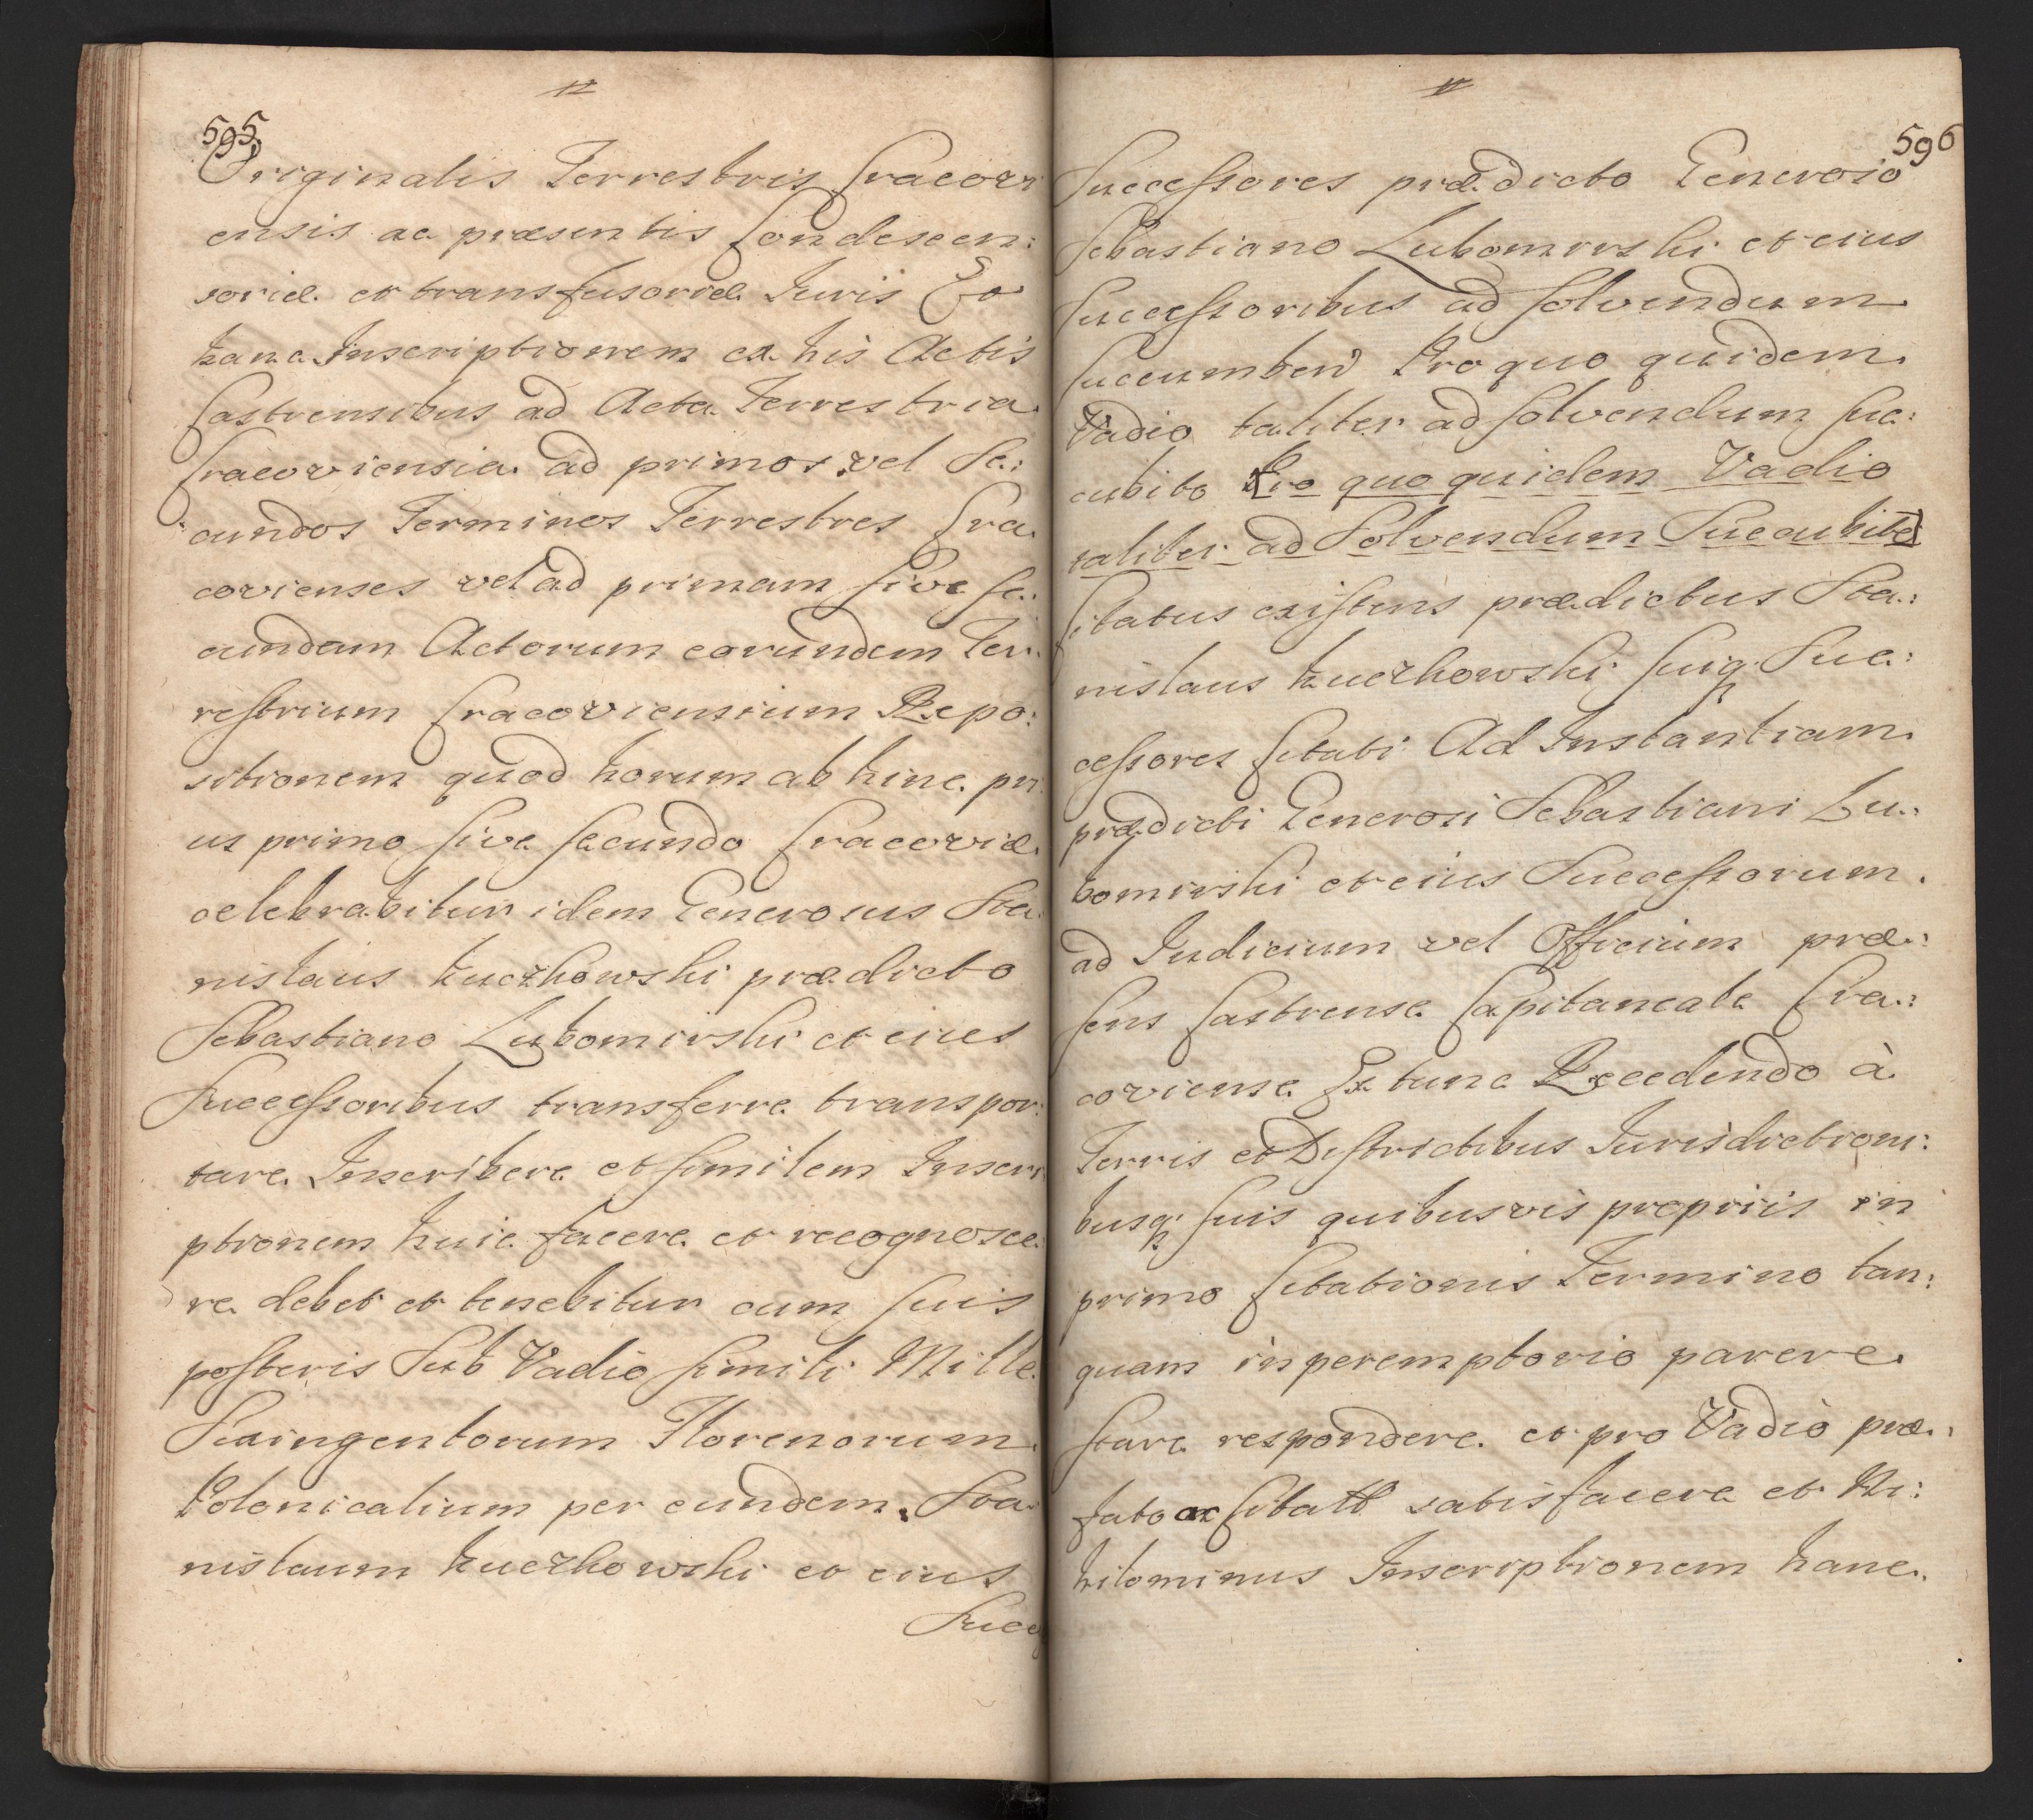 595
Originalis Terrestris Cracovi
ensis ac præsentis Condescen:
soriæ et transfusoriæ Iuris Et
hanc Inscriptionem ex his Actis
Castrensibus ad Acta Terrestria
Cracoviensia ad primos vel Se:
cundos Terminos Terrestres Cra
covienses vel ad primam sive se:
cundam Actorum eorundem Ter:
restrium Cracoviensium Repo:
sitionem quod horum ab hinc pri
us primo sive secundo Cracoviæ
celebrabitur idem Generosus Sta
nislaus Kuczkowski prædicto
Sebastiano Lubomirski et eius
Successoribus transferre transpor:
tare Inscribere et similem Inscri
ptionem huic facere et recognosce
re debet et tenebitur cum suis
posteris Sub Vadio simili Mille
Sexingentorum Florenorum
Polonicalium per eundem Sta
nislaum Kuczkowski et eius
Succ
596
Successores prædicto Generoso
Sebastiano Lubomirski et eius
Successoribus ad solvendum
succumben Pro quo quidem
Vadio taliter ad solvendum suc:
cubito Pro quo quidem Vadio
taliter ad Solvendum Succubito
Citatus existens prædictus Sta:
nislaus Kuczkowski suiq Suc:
cessores Citati Ad Instantiam
prædicti Generosi Sebastiani Lu:
bomirski et eius Successorum
ad Iudicium vel Officium præ:
sens Castrense Capitaneale Cra:
coviense Ex tunc Recedendo à
Terris et Districtibus Iurisdictioni:
busq suis quibusvis propriis in
primo Citationis Termino tan:
quam in peremptorio parere
stare respondere et pro Vadio præ:
fato ac satisfacere et Ni:
hilominus Inscriptionem hanc